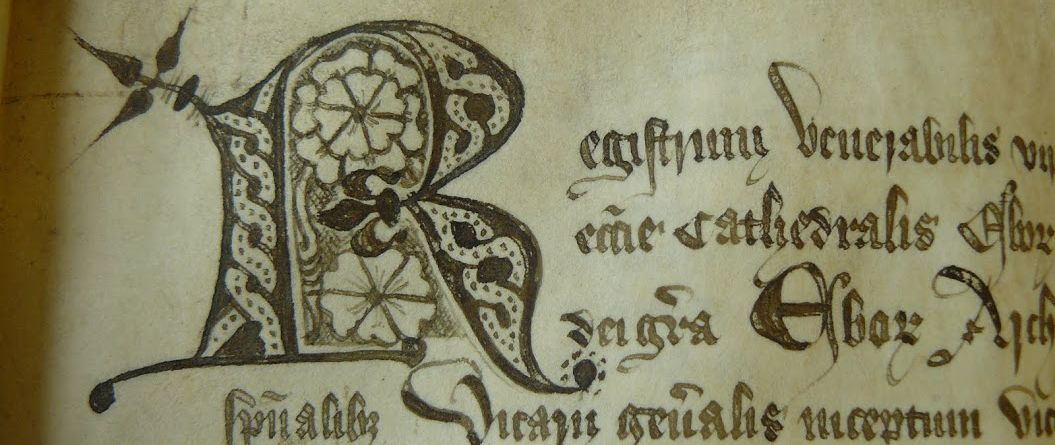 Registrum Venerabilis vi
eccie Cathedralis Ebor
dei gra Ebor Arch
spualibz Vicarii gen̄alis inceptum vi